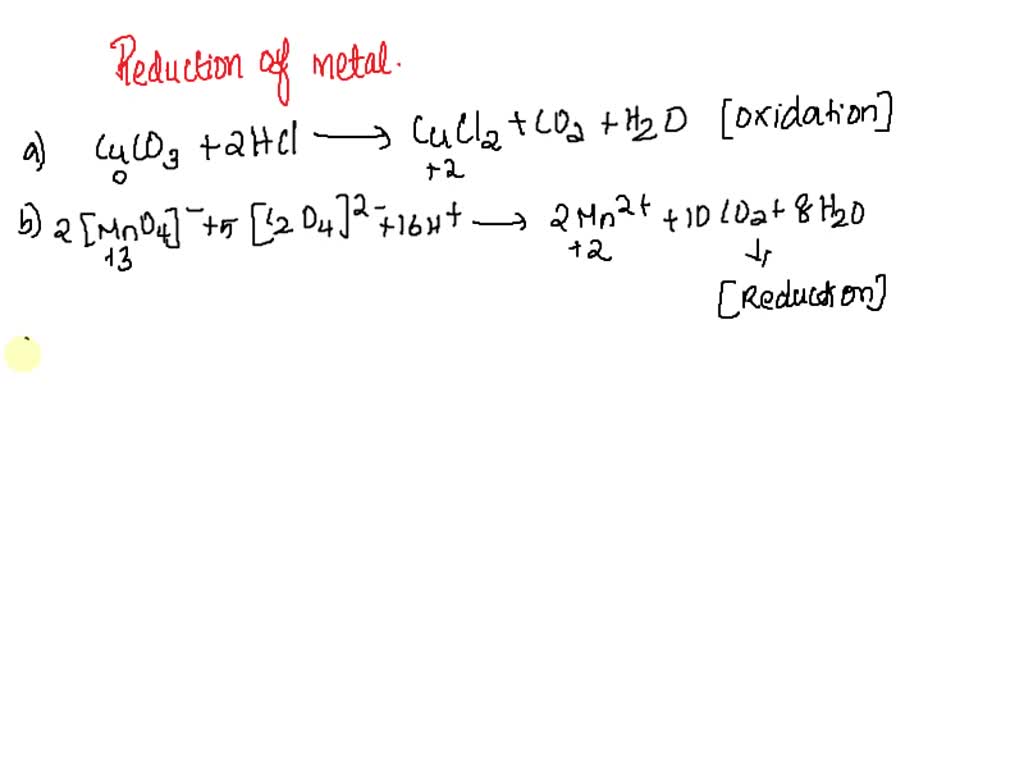 Reduction of metal.
a) CuCO3 + 2HCl → CuCl2 + CO2 + H2O [oxidation]
0 +2
b) 2[MnO4]⁻ + 5[C2O4]²⁻ + 16H⁺ → 2Mn²⁺ + 10CO2 + 8H2O
+3 +2 ↓
[Reduction]